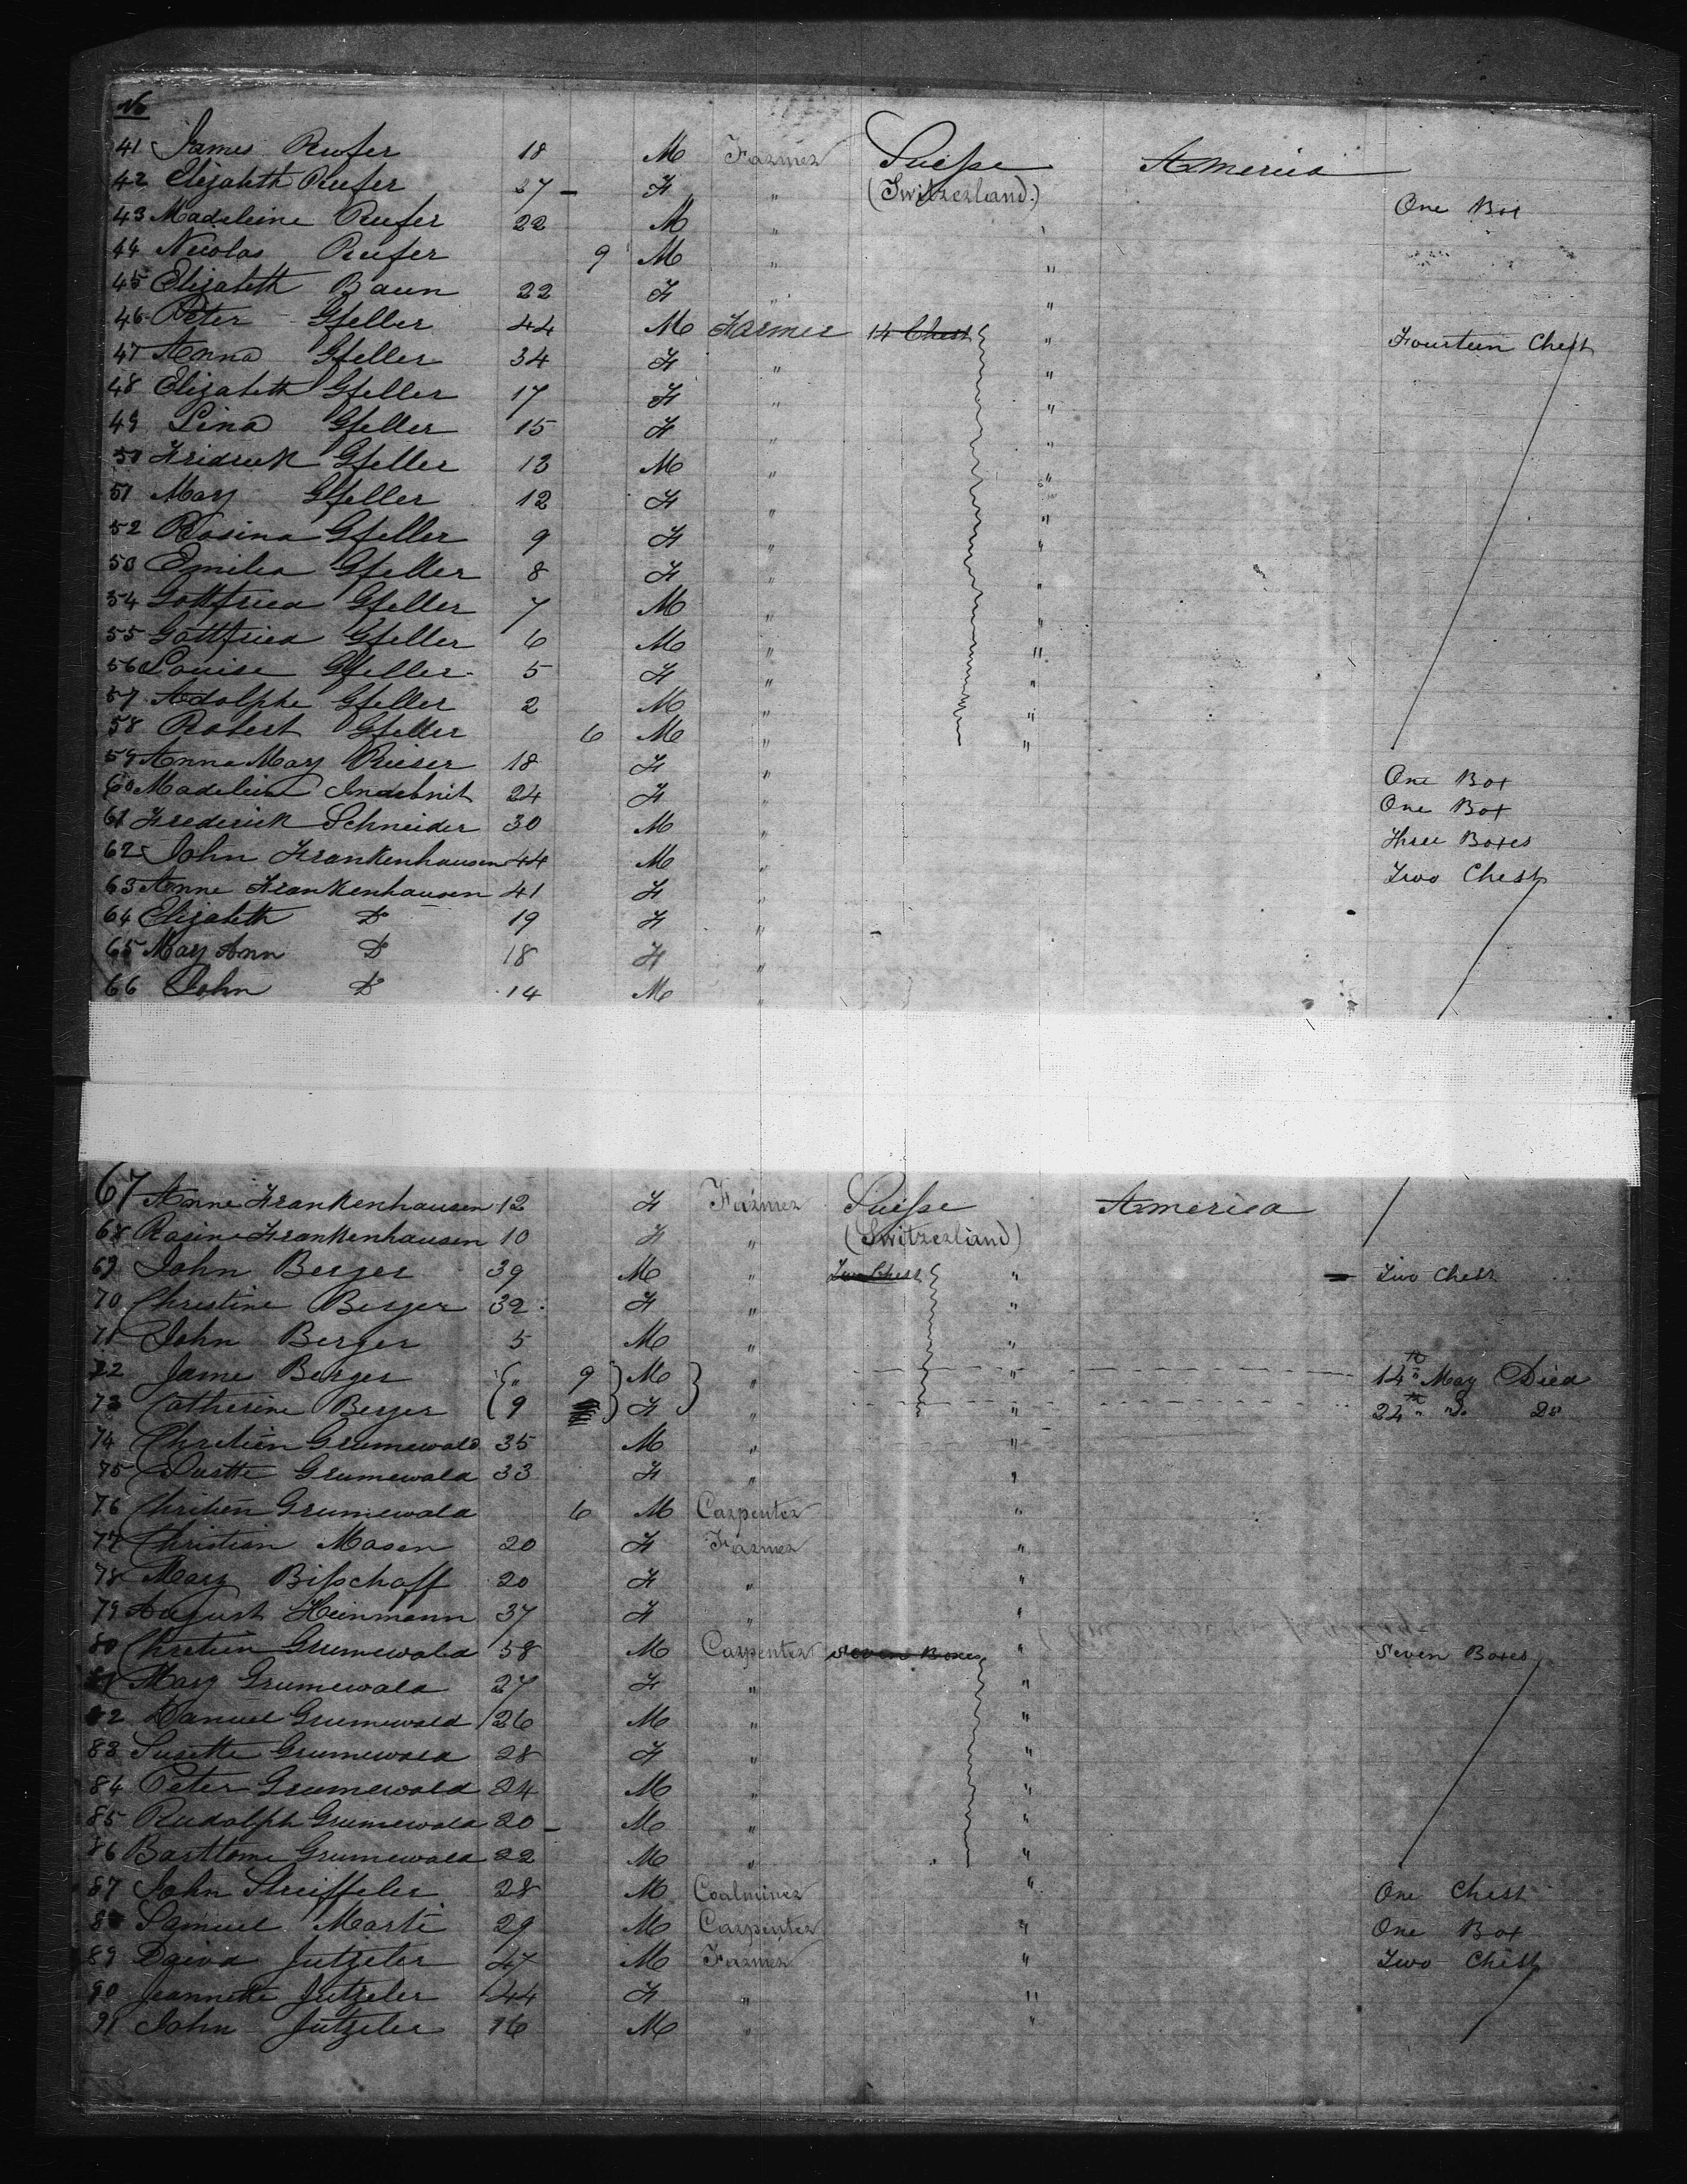 No
41 James Rufer 18 M Farmer Suisse America
42 Elizabeth Rufer 27 - F " (Switzerland.) One Box
43 Madeleine Rufer 22 M " "
44 Nicolas Rufer 9 M " "
45 Elizabeth Baun 22 F " "
46 Peter Gfeller 44 M Farmer 14 Chest " Fourteen Chest
47 Anna Gfeller 34 F " "
48 Elizabeth Gfeller 17 F " "
49 Lina Gfeller 15 F " "
50 Fridrick Gfeller 13 M " "
51 Mary Gfeller 12 F " "
52 Rosina Gfeller 9 F " "
53 Emilia Gfeller 8 F " "
54 Gottfried Gfeller 7 M " "
55 Gottfried Gfeller 6 M " "
56 Louise Gfeller 5 F " "
57 Adolphe Gfeller 2 M " "
58 Robert Gfeller 6 M " "
59 Anna Mary Rieser 18 F " One Box
60 Madeleine Indebnit 24 F " One Box
61 Frederick Schneider 30 M " Three Boxes
62 John Frankenhausen 44 M " Two Chest
63 Anne Frankenhausen 41 F "
64 Elizabeth Do 19 F "
65 Mary Ann Do 18 F "
66 John Do 14 M "
67 Anne Frankenhausen 12 F Farmer Suisse America
68 Rosine Frankenhausen 10 F " (Switzerland)
69 John Berger 39 M " Two Chest " Two Chest
70 Christine Berger 32 F " "
71 John Berger 5 M " "
72 Jame Berger " 9 M " " 14th May Died
73 Catherine Berger 9 F " " 24th Do Do
74 Chretien Grumewald 35 M " "
75 Susette Grumewald 33 F " "
76 Chritien Grumewald 6 M Carpenter "
77 Christian Mosen 20 F Farmer "
78 Mary Bisschoff 20 F " "
79 August Heinmann 37 F " "
80 Chretien Grumewald 58 M Carpenter Seven Boxes " Seven Boxes
81 Mary Grumewald 27 F " "
82 Daniel Grumewald 26 M " "
83 Susette Grumewald 28 F " "
84 Peter Grumewald 24 M " "
85 Rudolph Grumewald 20 - M " "
86 Barttome Grumewald 22 M " "
87 John Streiffeler 28 M Coalminer " One Chest
88 Samuel Marti 29 M Carpenter " One Box
89 David Jutzeler 47 M Farmer " Two Chest
90 Jeannette Jutzeler 44 F " "
91 John Jutzeler 16 M " "